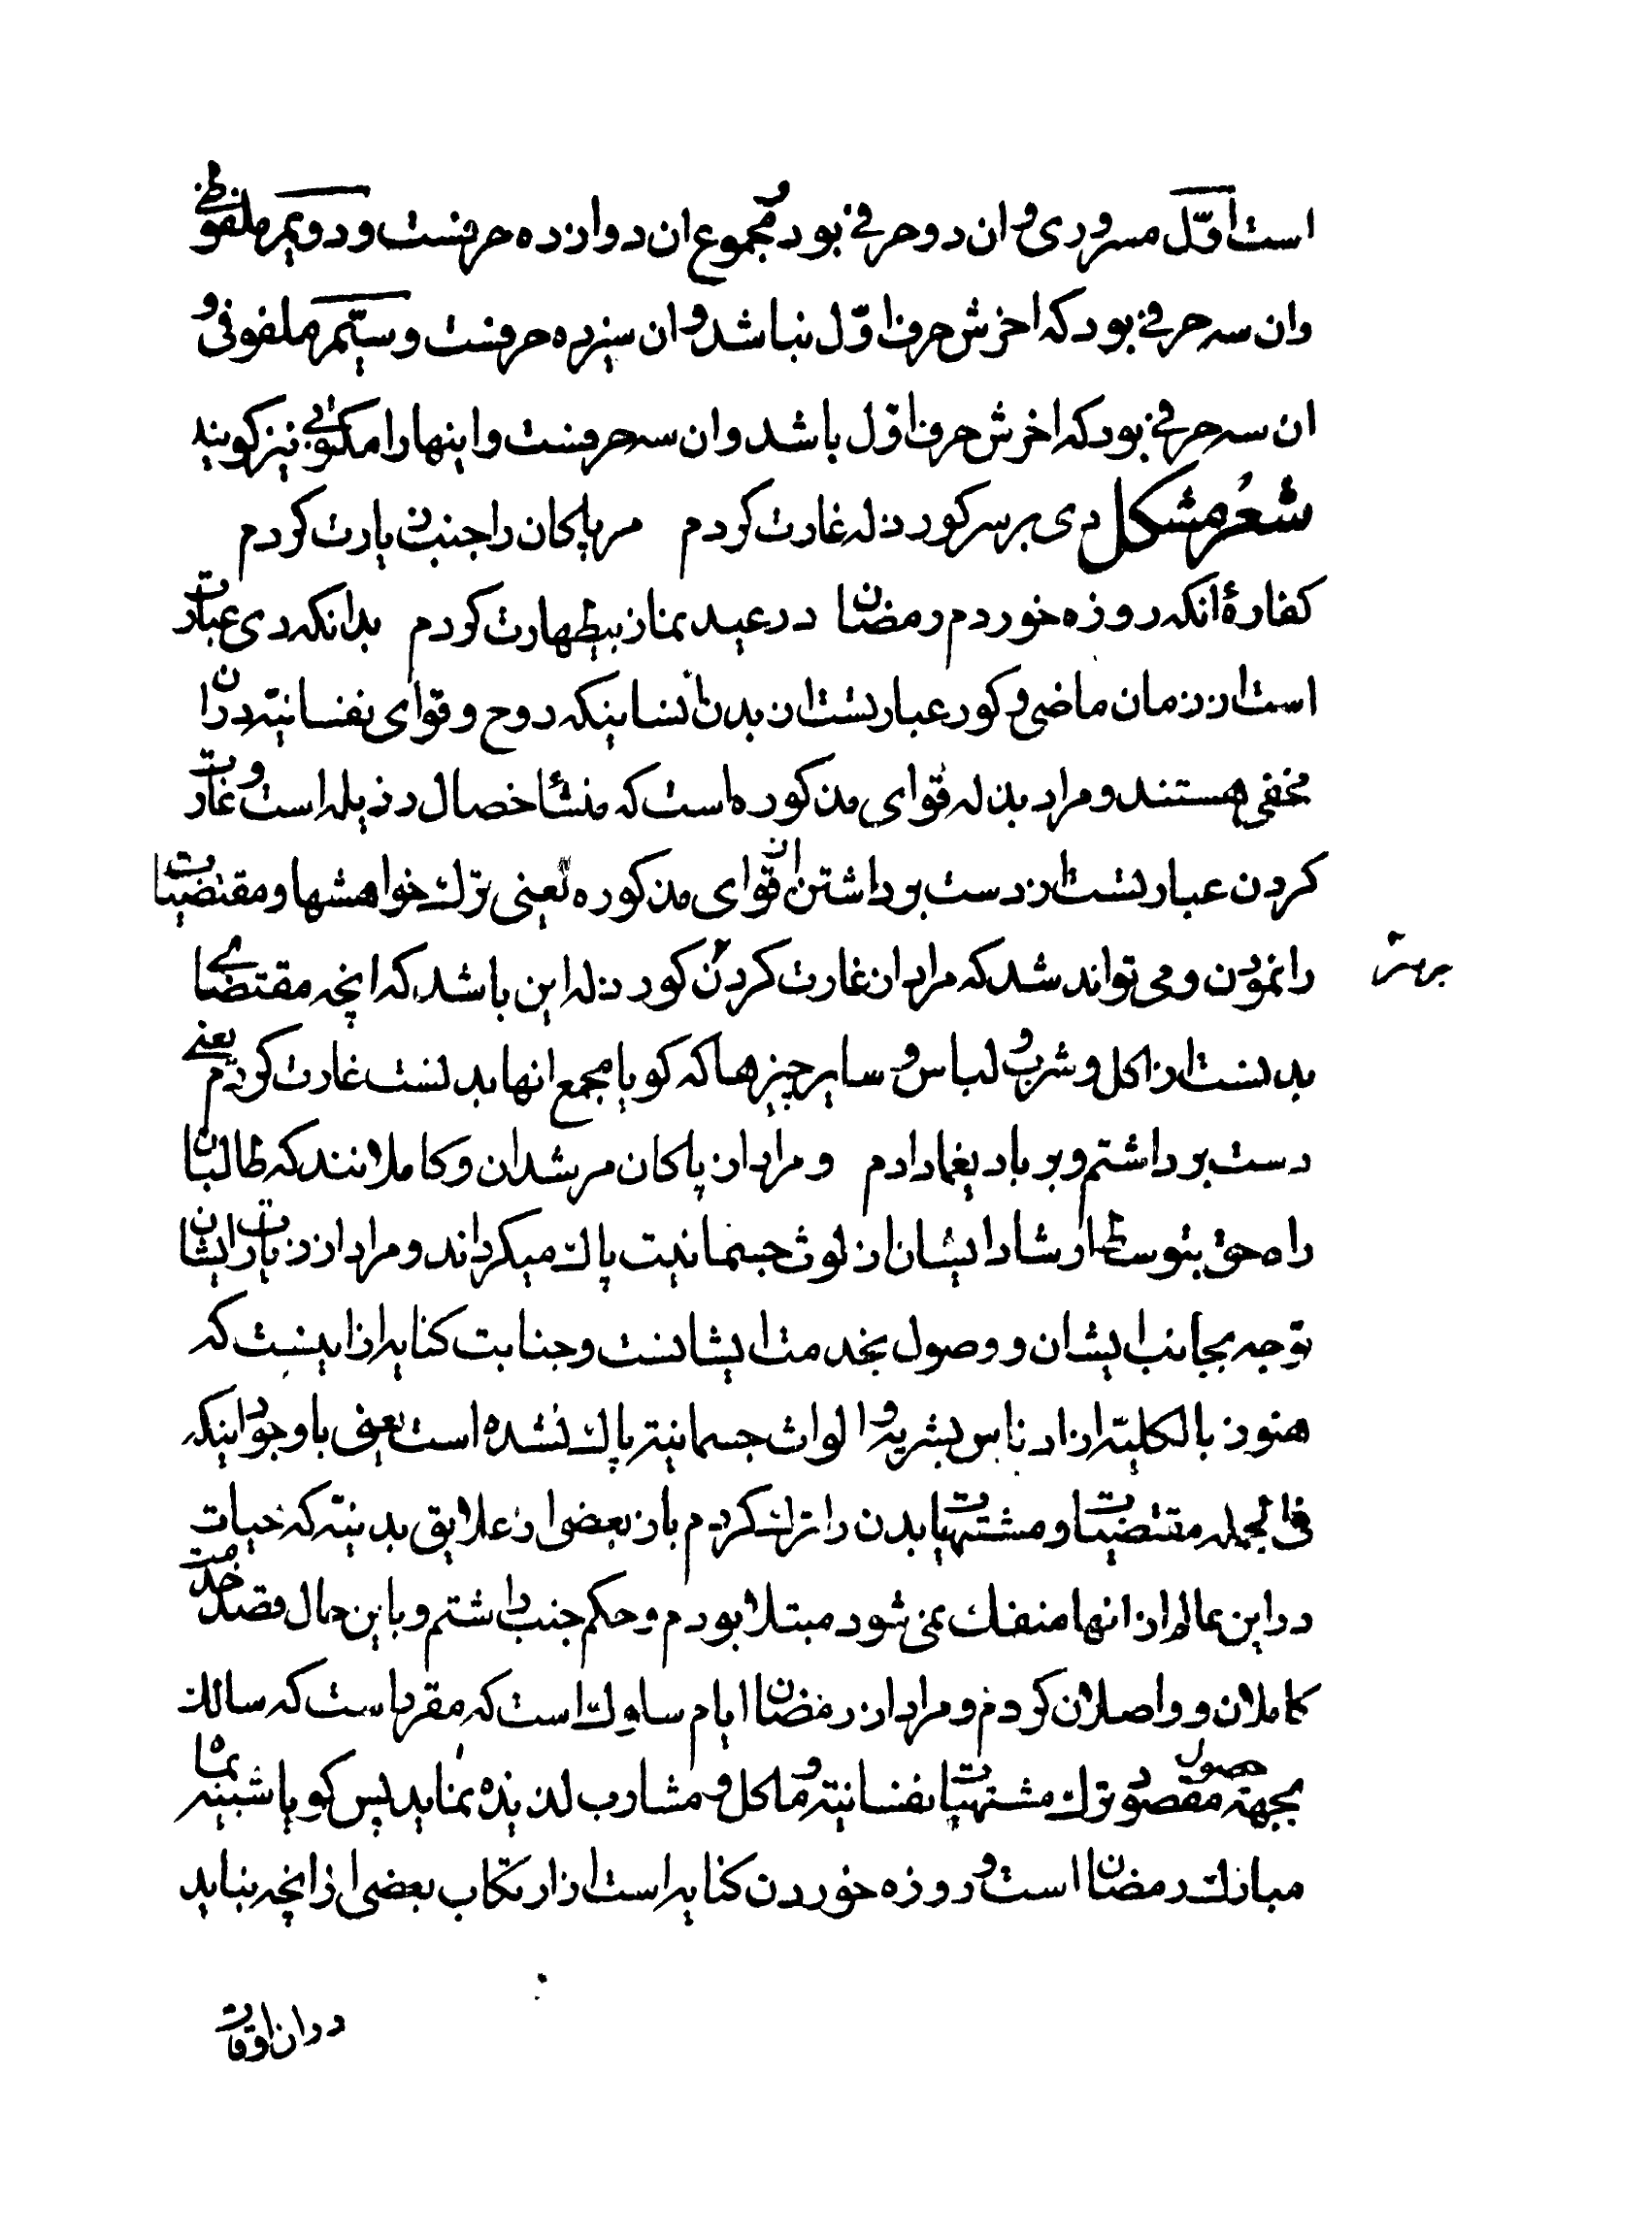 است اوّل مسروری و ان دو حرفی بود و مجموع ان دوازده حرفست و دویم ملفوظی
وان سه حرفی بود که اخرش حرف اوّل نباشد و ان سیزده حرفست و سیّم ملفوفی و
ان سه حرفی بود که اخرش حرف اوّل باشد و ان سه حرفست و اینها را مکتوبی نیز کویند
شعر مشکل دی بر سر کور ذله غارت کردم مر پاکان را جنب زیارت کردم
کفارهٔ انکه روزه خوردم رمضان در عید نماز بیطهارت کردم بدانکه دی عبارت
است از زمان ماضی و کور عبارتست از بدن انسانیکه روح و قوای نفسانیّه در ان
مخفی هستند و مراد بذله قوای مذکوره است که منشأ خصال رذیله است و غارت
کردن عبارتست از دست برداشتن از قوای مذکوره یعنی ترک خواهشها و مقتضیات
را نمودن و می تواند شد که مراد از غارت کردن کور ذله این باشد که انچه مقتضای
بدنست از اکل و شرب و لباس و سایر چیزها که کویا مجمع انها بدنست غارت کردم یعنی
دست برداشتم و بر باد یغما دادم و مراد از پاکان مرشدان و کاملانند که طالبان
راه حق بتوسط ارشاد ایشان از لوث جسمانیت پاک میکرداند و مراد از زیارت ایشان
توجه بجانب ایشان و وصول بخدمت ایشانست و جنابت کنایه از اینست که
هنوز بالکلیّه از ادناس بشریه و الواث جسمانیه پاک نشده است یعنی با وجود اینکه
فی الجمله مقتضیات و مشتهیات بدن را ترک کردم باز بعضی از علایق بدنیّه که حیات
در این عالم از انها منفک نمی شود مبتلا بودم و حکم جنب داشتم و با این حال قصد خدمت
کاملان و واصلان کردم و مراد از رمضان ایام سلوک است که مقرر است که سالک
بجهة حصول مقصود ترک مشتهیات نفسانیّه و ماکل و مشارب لذیذه نماید پس کویا شبیه بماه
مبارک رمضان است و روزه خوردن کنایه است از ارتکاب بعضی از انچه نباید
در ان اوقات